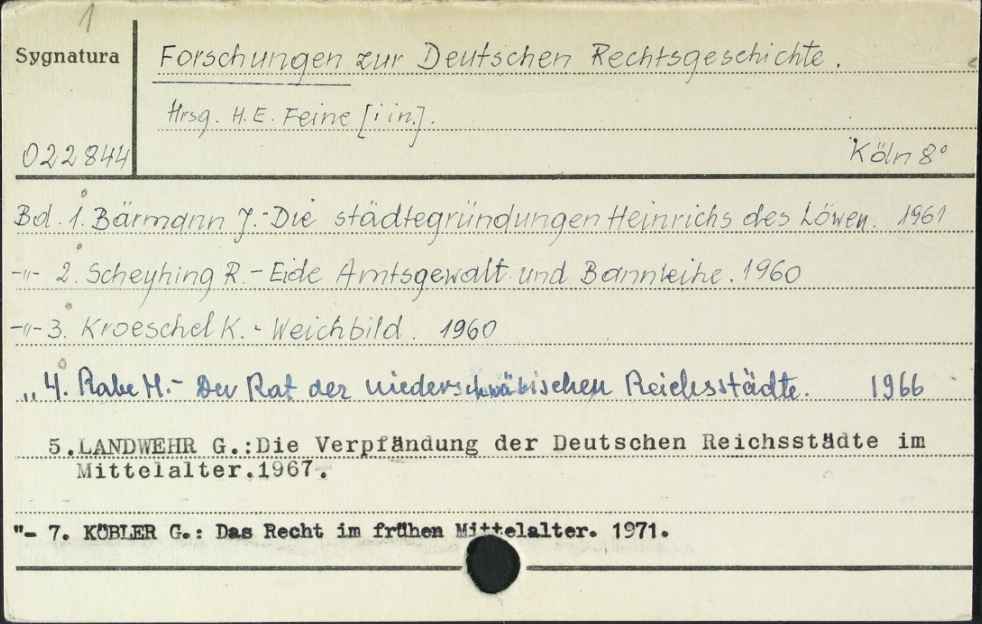 1
Sygnatura
Forschungen zur Deutschen Rechtsgeschichte.
Hrsg. H. E. Feine [i in.].
022844
Köln 8°
Bd. 1. Bärmann J.- Die städtegründungen Heinrichs des Löwen. 1961
-"- 2. Scheyhing R. - Eide Amtsgewalt und Bannleihe. 1960
-"- 3. Kroeschel K. - Weichbild. 1960
„ 4. Rabe H. - Der Rat der niederschwäbischen Reichsstädte. 1966
5. LANDWEHR G.: Die Verpfändung der Deutschen Reichsstädte im
Mittelalter. 1967.
"- 7. KÖBLER G.: Das Recht im frühen Mittelalter. 1971.